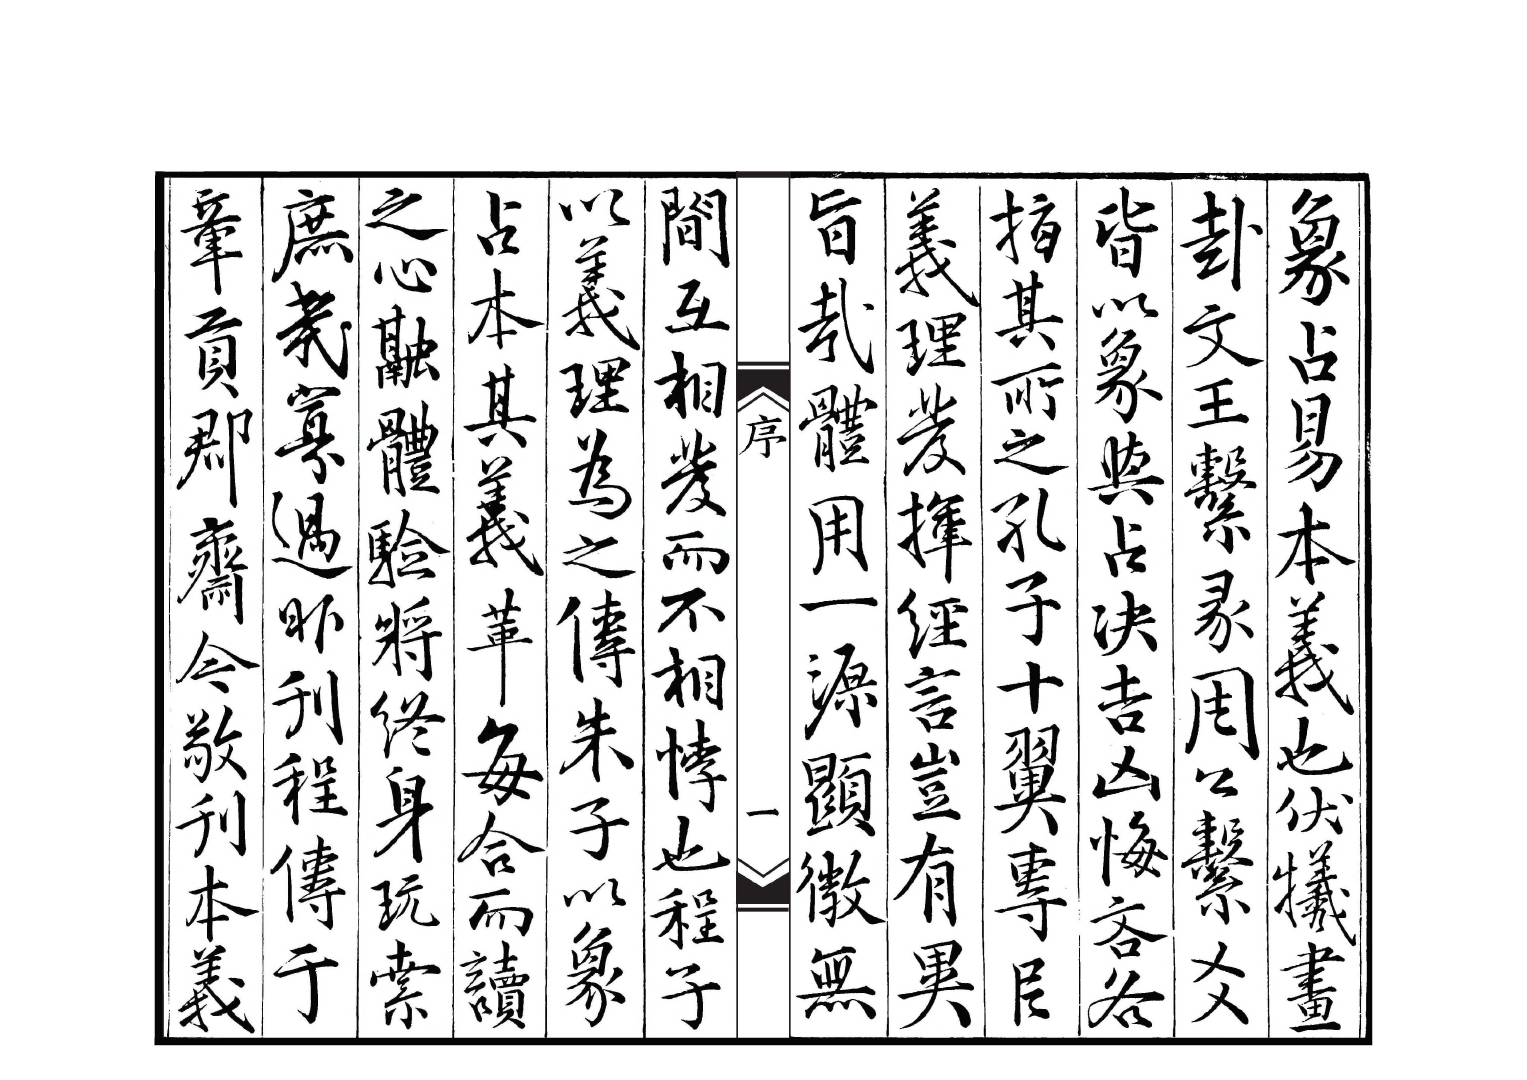 象占易本義也伏犧畫
卦文王繫彖周公繫爻
皆以象與占决吉凶悔吝各
指其所之孔子十翼專用
義理發揮經言豈有異
旨哉體用一源顯微無
序
一
間互相發而不相悖也程子
以義理為之傳朱子以象
占本其義革每合而讀
之心融體驗將終身玩索
庶幾寡過昨刊程傳于
章貢郡齋今敬刊本義